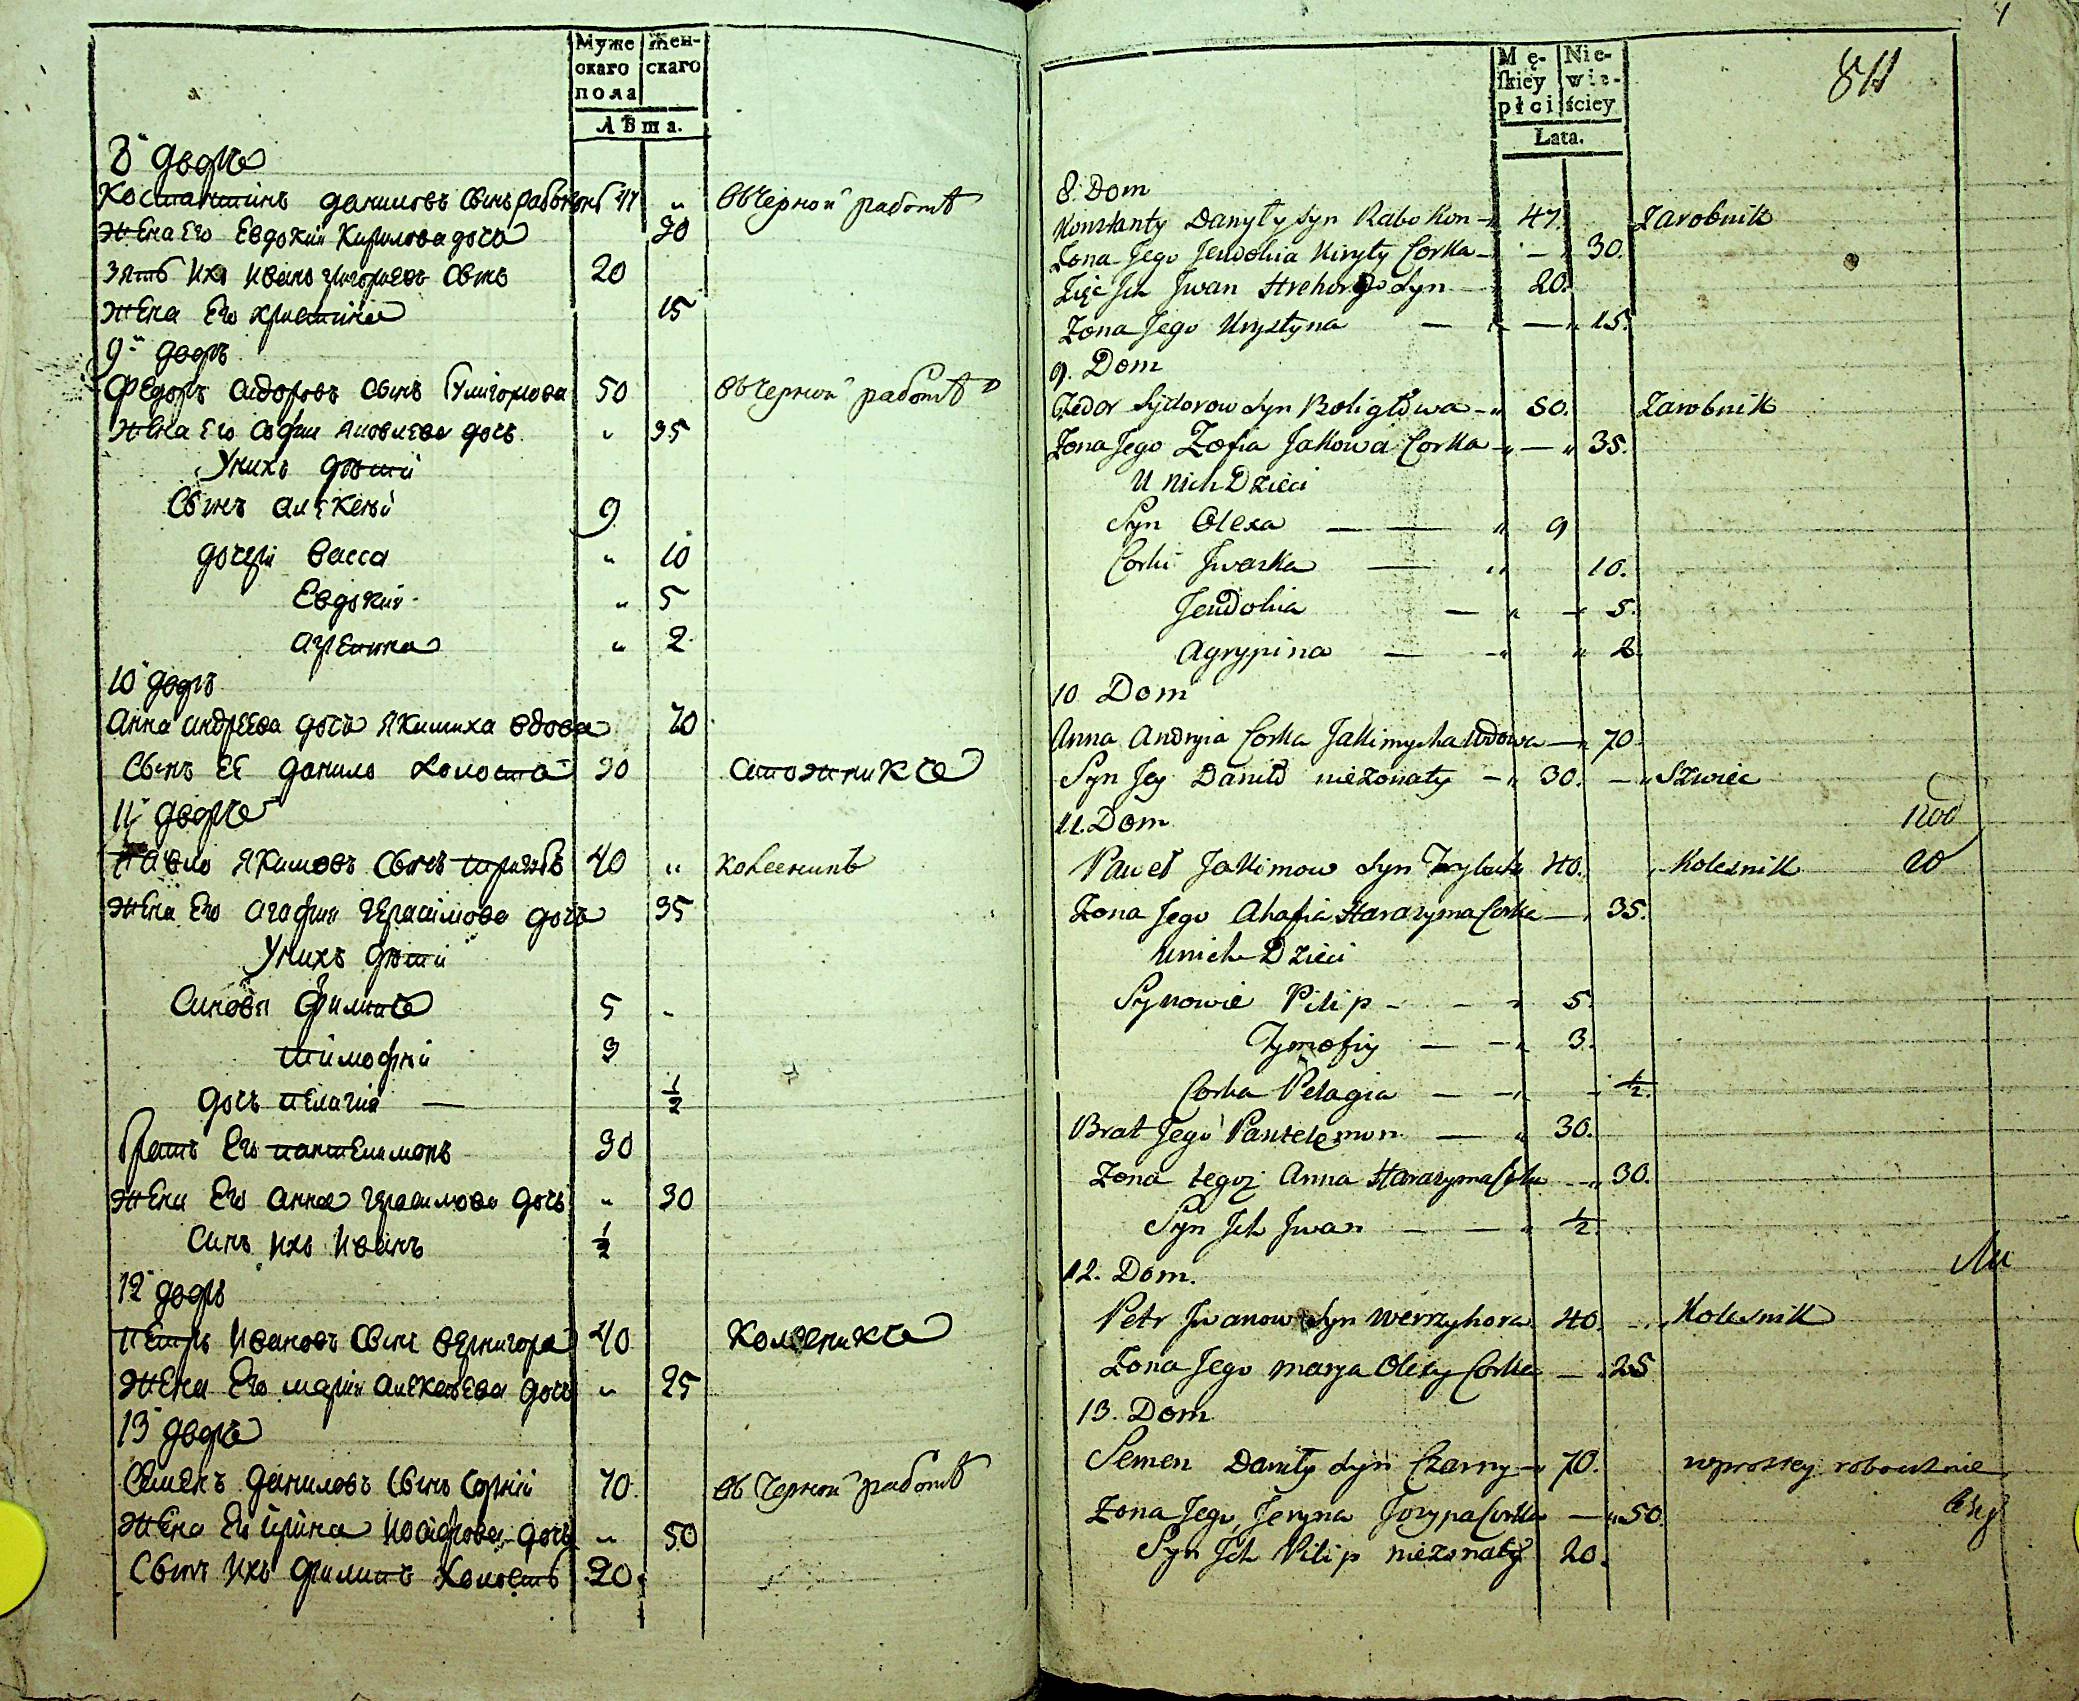 Муже Жен-
скаго скаго
пола
Лѣта.
8й дворъ
Костантинъ даниловъ сынъ рабоконь 47 „ въ черной работѣ
жена его Евдокия Кирилова дочь 30
зять ихъ Иванъ григориевъ сынъ 20
жена его христина 15
9й дворъ
Федоръ сидоровъ сынъ 50 въ черной работѣ
жена его София яковлева дочь „ 35
У нихъ дѣти
Сынъ алексѣй 9
дочери васса „ 10
Евдокия „ 5
„ 2
10й дворъ
Анна андреева дочь якимиха вдова 70
Сынъ ее данило холостъ 30
11й дворъ
Павло якимовъ сынъ 40 „ колесникъ
жена его агафия герасимова дочь 35
У нихъ дѣти
Синовя филипъ 5 -
тимофѣй 3
дочь пелагия — ½
братъ его пантелимонъ 30
жена его анна герасимова дочь „ 30
Синъ ихъ иванъ ½
12й дворъ
петръ ивановъ сынъ вернигора 40 Колесникъ
жена его мария алексѣева дочь „ 25
13й дворъ
Семенъ даниловъ сынъ 70 въ черной работѣ
жена его ирина иосифова дочь „ 50
Сынъ ихъ филипъ холостъ 20
Mę- Nie-
skiey wie-
płci ściey
Łata.
84
8. Dom
Konstanty Danyły Syn Rabokon - 47. Zarobnik
Zona Jego Jewdokia Kiryły Corka - - 30.
Zięć Jch Jwan Syn 20.
Zona Jego Krystyna — „ — „ 15.
9. Dom
Fedor Sydorow Syn 50. Zarobnik
Zona Jego Zofia Jakowa Corka - „ — „ 35.
U nich Dzieci
Syn Olexa — — „ 9
Corki Jwaska — „ 10.
Jewdokia — „ - 5.
Agrypina — - „ „ 2
10 Dom
Anna Andryia Corka Jakimycha Wdowa — „ 70.
Syn Jey Daniło niezonaty - „ 30. - „ Szwiec
11. Dom
Paweł Jakimow Syn 40. „ Kolesnik 20
Zona Jego Ahafia Harasyma Corka — „ 35.
U nich Dzieci
Synowie Pilip - - „ 5.
Tymofiy — - „ 3.
Corka Pelagia — - „ - ½.
Brat Jego Pantelemon — „ 30.
Zona tegoż Anna Harasyma Corka - „ 30.
Syn Jch Jwan — — „ ½.
12. Dom.
Petr Jwanow Syn Werzyhora 40. - „ Kolesnik
Zona Jego Marya Olexy Corka — „ 25
13. Dom
Semen Daniły Syn Czarny - „ 70. w prostey robocznie
Zona Jego Jeryna Jozypa Corka — „ 50.
Syn Jch Pilip niezonaty 20.